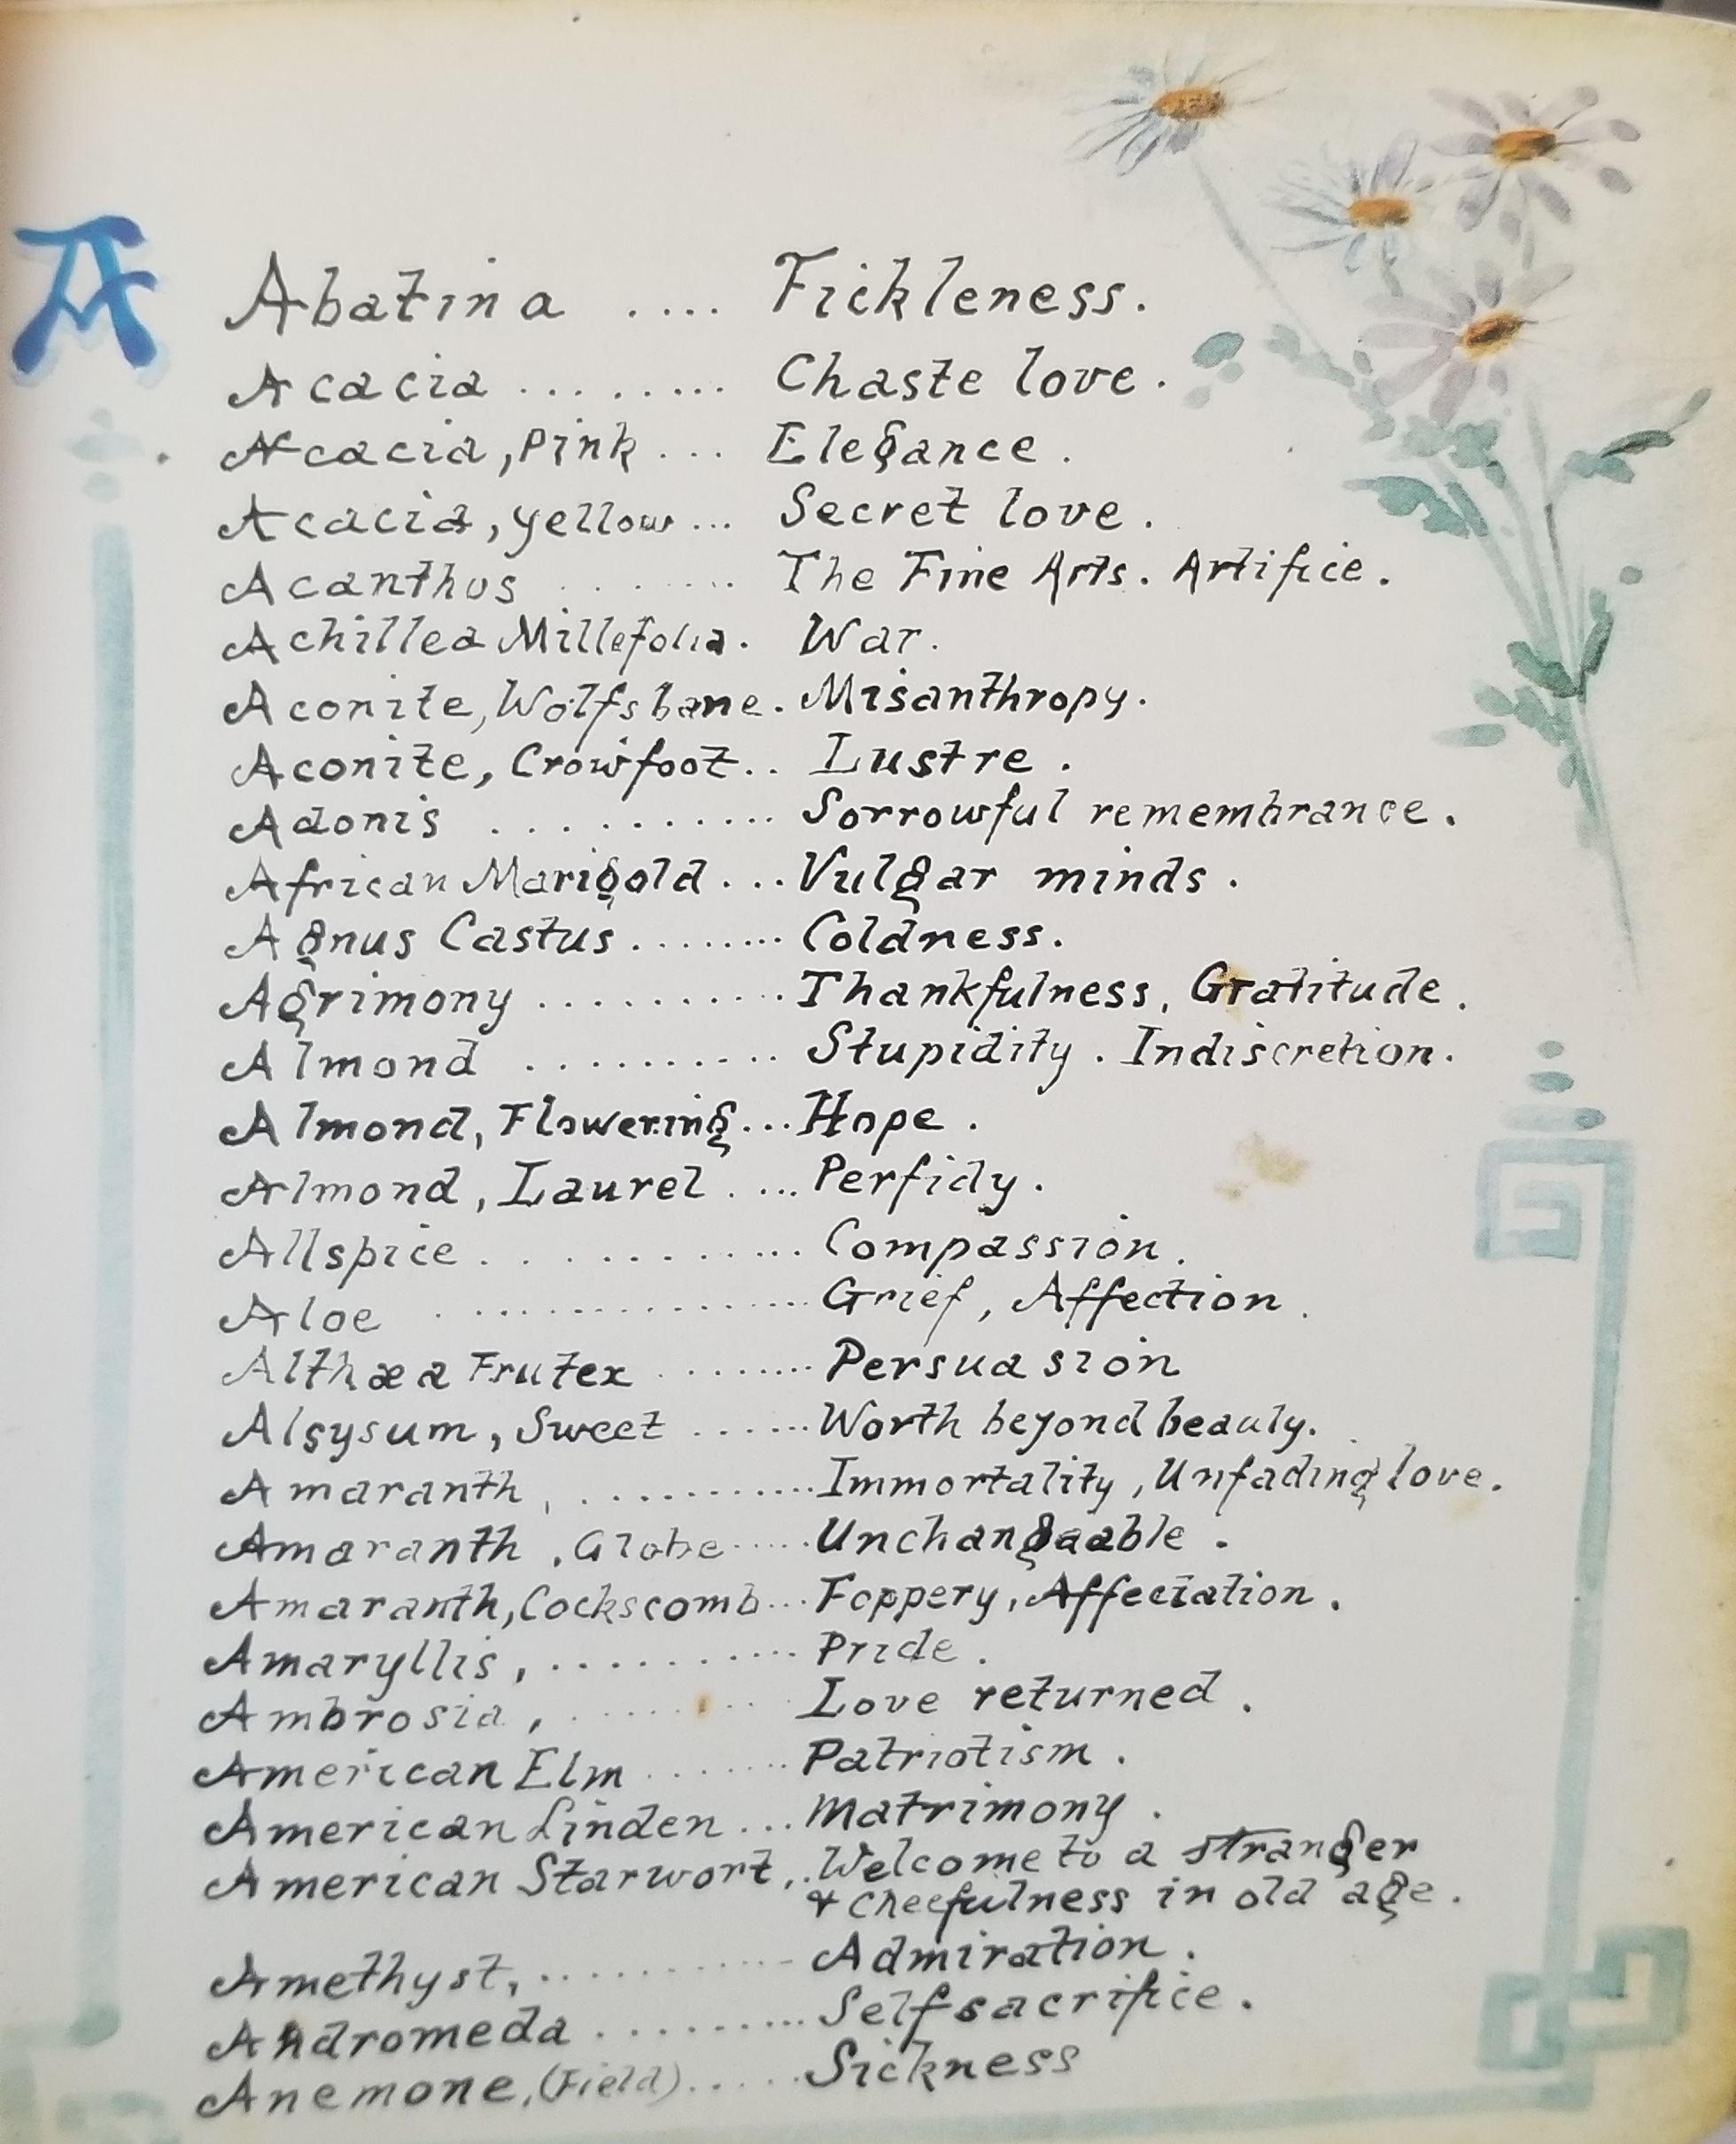 A
Abatina .... Fickleness.
Acacia ......... Chaste love.
Acacia, Pink ... Elegance.
Acacia, yellow ... Secret love.
Acanthus ....... The Fine Arts. Artifice.
Achillea Millefolia. War.
Aconite, Wolfsbane. Misanthropy.
Aconite, Crowfoot.. Lustre.
Adonis ........... Sorrowful remembrance.
African Marigold ... Vulgar minds.
Agnus Castus ........ Coldness.
Agrimony .......... Thankfulness, Gratitude.
Almond .......... Stupidity. Indiscretion.
Almond, Flowering... Hope.
Almond, Laurel .... Perfidy.
Allspice ........... Compassion.
Aloe ............... Grief, Affection.
Althæa Frutex ........ Persuasion
Alsysum, Sweet ...... Worth beyond beauly.
Amaranth, ........... Immortality, Unfading love.
Amaranth, Globe ...... Unchangaable.
Amaranth, Cockscomb... Foppery, Affectation.
Amaryllis, .......... Pride.
Ambrosia, ......... Love returned.
American Elm ....... Patriotism.
American Linden ... Matrimony.
American Starwort, .. Welcome to a stranger
& cheefulness in old age.
Amethyst, .......... Admiration.
Andromeda ......... Selfsacrifice.
Anemone, (Field) ..... Sickness